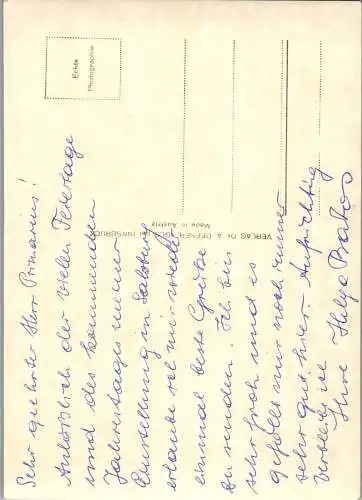 Sehr geehrter Herr Primarius!
Anläßlich der vielen Feiertage
und des kommenden
Jahrestages meiner
Einstellung in Salzburg
erlaube ich mir wieder
einmal beste Grüße
zu senden. Ich bin
sehr froh und es
gefällt mir noch immer
sehr gut hier. Aufrichtig
verbleibe
Ihre Helga
Echte
Photographie
VERLAG Dr. A. DEFNER, IGLS BEI INNSBRUCK
Made in Austria